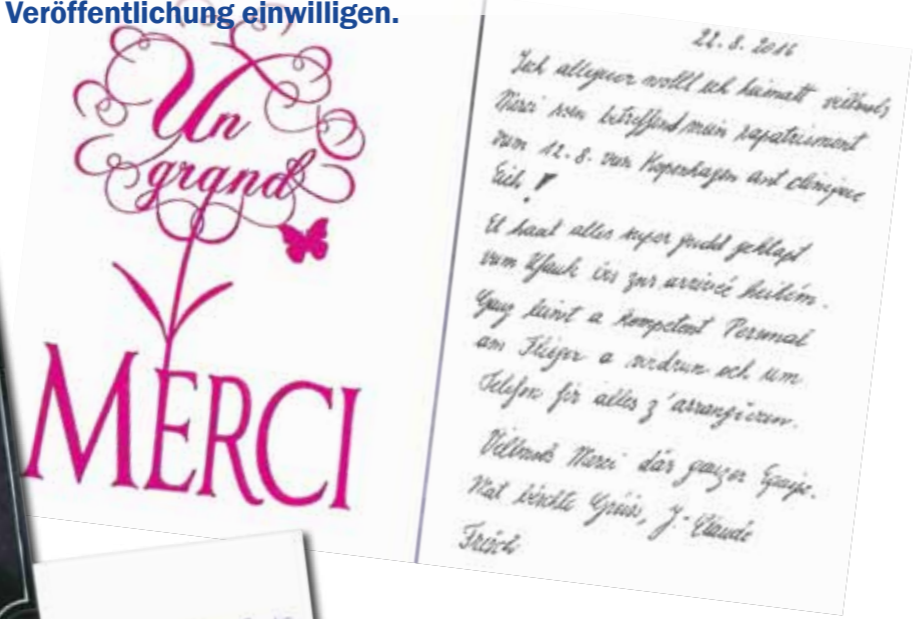 Veröffentlichung einwilligen.
Un
grand
MERCI
22.8.2016
Iech alleguer wollt ech heimatt villmols
Merci soen betreffend mein rapatriement
vum 12.8. vun Kopenhagen an d clinique
Eich !
Et haut alles super gudd geklapt
vum Ufank bis zur arrivée
Ganz léint a kompetent Personal
am Flieger a virdrun och um
Telefon fir alles z'arrangéieren.
Villmols Merci där ganzer Equipe.
Mat beschte Gréiss, J-Claude
Frisch